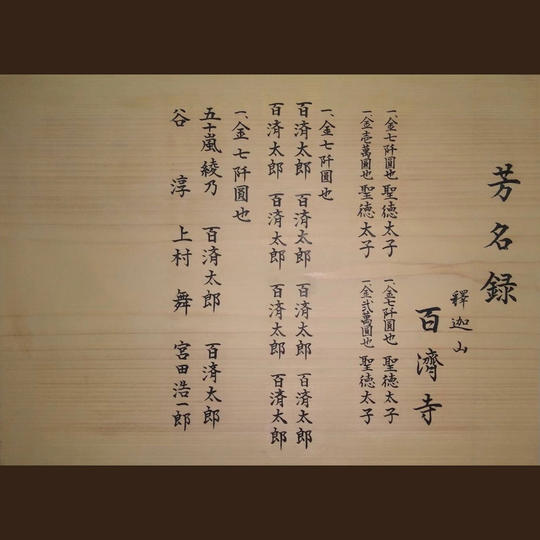 芳名録
釋迦山
百濟寺
一、金七阡圓也 聖徳太子 一、金七阡圓也 聖徳太子
一、金壱萬圓也 聖徳太子 一、金弐萬圓也 聖徳太子
一、金七阡圓也
百済太郎 百済太郎 百済太郎 百済太郎
百済太郎 百済太郎 百済太郎 百済太郎
一、金七阡圓也
五十嵐綾乃 百済太郎 百済太郎
谷淳 上村舞 宮田浩一郎